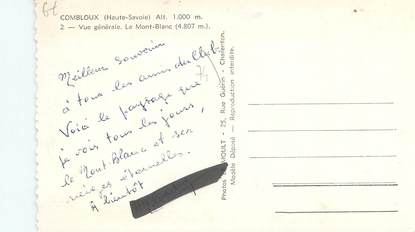 64
COMBLOUX (Haute-Savoie) Alt. 1.000 m.
2 — Vue générale. Le Mont-Blanc (4.807 m.).
Meilleur souvenir
à tous les amis du Club
74
Voici le paysage que
je vois tous les jours,
le Mont-Blanc et ses
neiges éternelles.
A bientôt
Photos - 25, Rue Guérin - Charenton.
Modèle Déposé — Reproduction interdite.